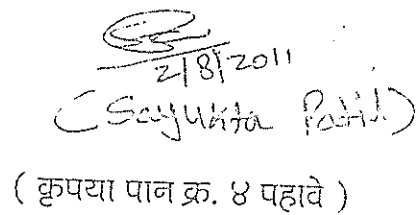 2/8/2011
(Sayukta Patil)
( कृपया पान क्र. ४ पहावे )